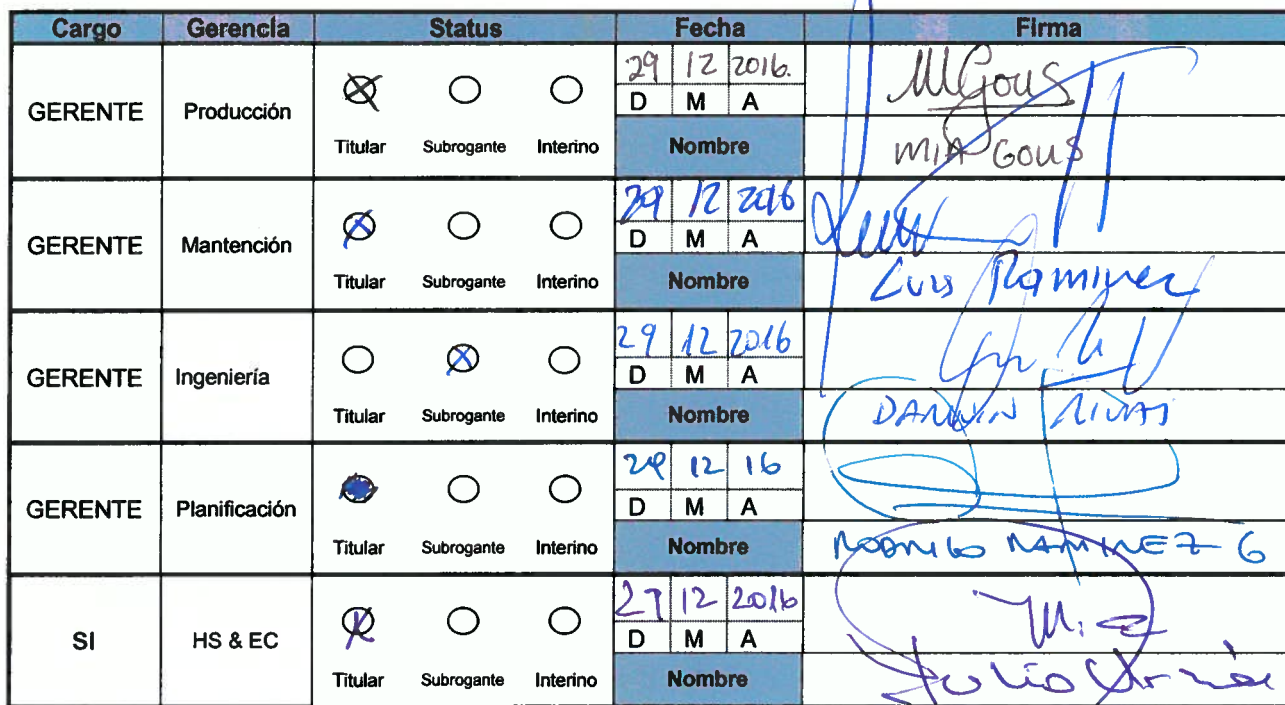 Cargo Gerencia Status Fecha Firma
GERENTE Producción Titular Subrogante Interino
29 12 2016.
D M A
Nombre
MGous
MIA GOUS
GERENTE Mantención Titular Subrogante Interino
29 12 2016
D M A
Nombre
Luis Ramirez
GERENTE Ingeniería Titular Subrogante Interino
29 12 2016
D M A
Nombre
DARWIN RIVAS
GERENTE Planificación Titular Subrogante Interino
29 12 16
D M A
Nombre
RODRIGO RAMIREZ G
SI HS & EC Titular Subrogante Interino
27 12 2016
D M A
Nombre
Julio